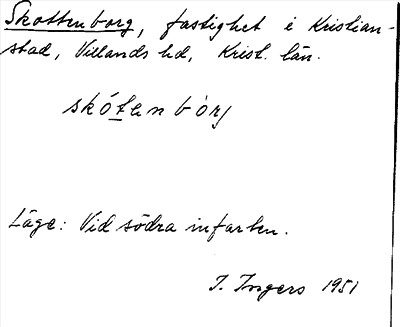 Skottenborg, fastighet i Kristian-
stad, Villands hd, Krist. län.
skó̱tenbòrj
Läge: Vid södra infarten.
I. Ingers 1951